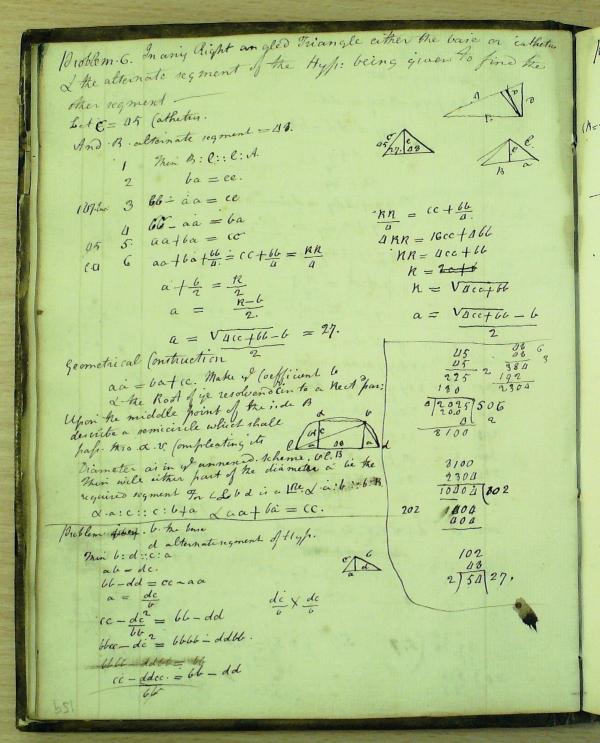 Problem. 6. In any Right angled Triangle either the base or cathetus
& the alternate segment of the Hyp: being given to find the
other segment
Let C = 45 Cathetus.
And B. alternate segment = 48.
1 Then B : C :: C : A.
2 ba = cc.
3 bb - aa = cc
4 bb - aa = ba
5 aa + ba = cc
6 aa + ba + bb/4 = cc + bb/4 = RR/4
a + b/2 = R/2
a = R-b/2
a = √4cc+bb - b/2 = 27.
RR/4 = cc + bb/4
4RR = 16cc + 4bb
RR = 4cc + bb
R = 2c+b
R = √4cc+bb
a = √4cc+bb - b/2
Geometrical Construction
aa = ba + cc. Make ye Coefficient b
& the Root of ye resolvend c into a Rect par:
Upon the middle point of the side B
describe a semicircle which shall
pass thro a. b. compleating its
Diameter as in ye annexed scheme.
Then will either part of the diameter a be the
required segment For
a : c :: c : b+a & aa + ba = cc.
45
45
225
180
2025
8100
48
48
384
192
2304
8100
2304
10404 102
202 404
404
102
48
2 54 27.
Problem b. the base
d alternate segment of Hyp.
Then b : d :: c : a
ab = dc.
bb - dd = cc - aa
a = dc/b
dc/b × dc/b
cc - dc²/bb = bb - dd
bbcc - dc² = bbbb - ddbb.
bbbb - ddbb = bb
cc - ddcc/bb = bb - dd